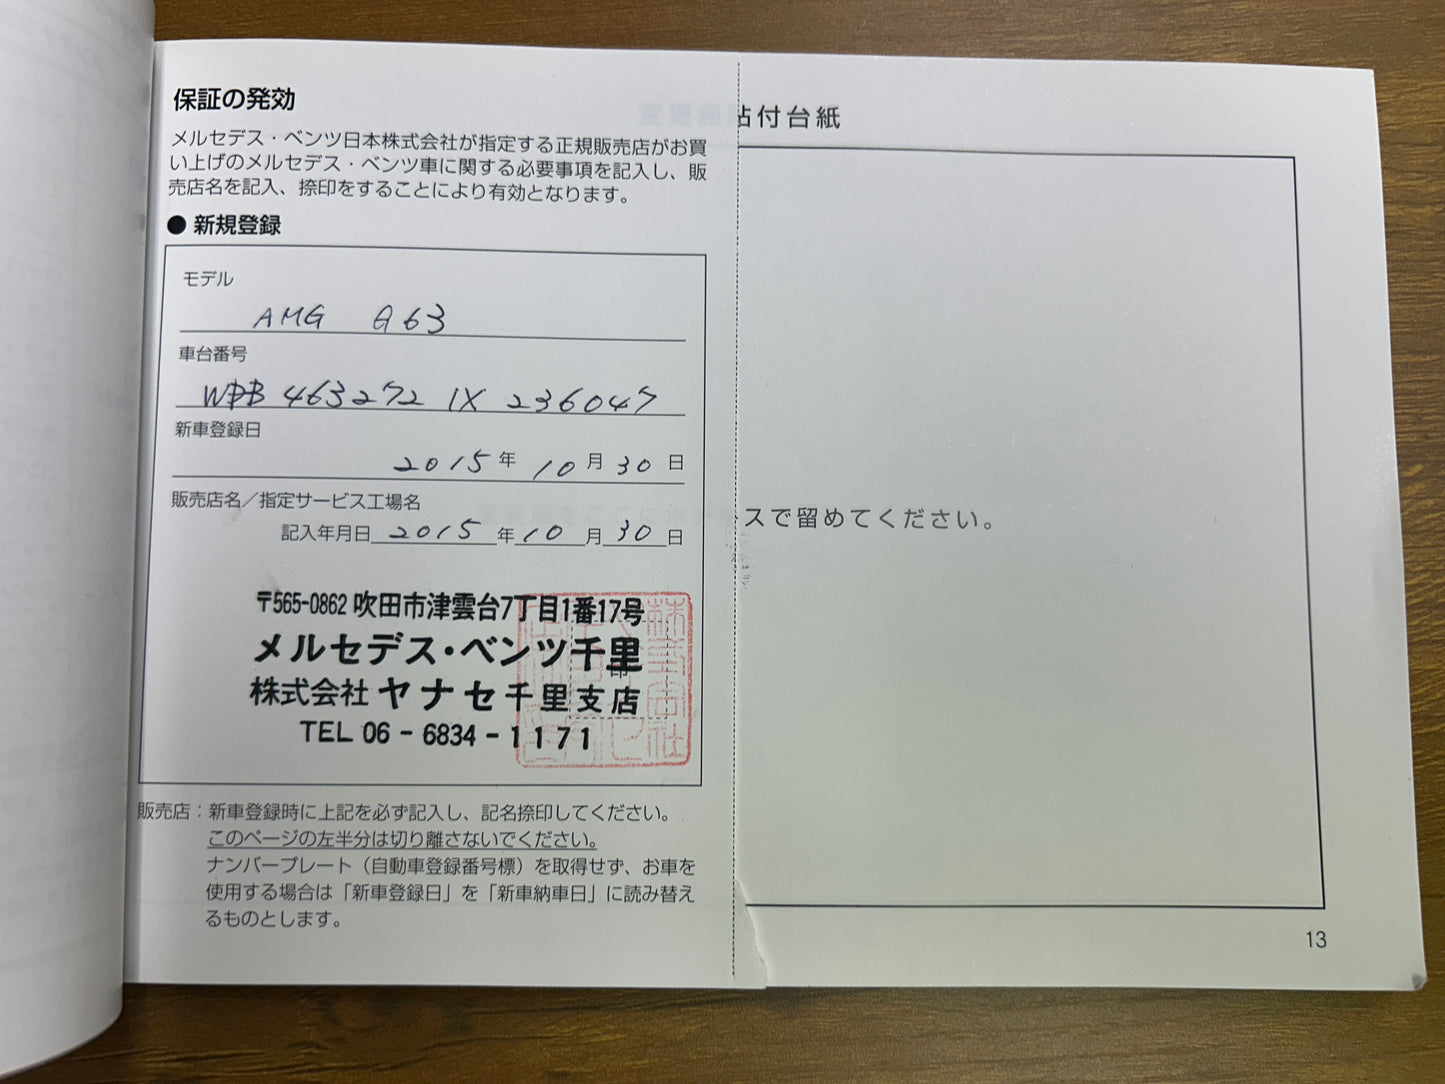 保証の発効
メルセデス・ベンツ日本株式会社が指定する正規販売店がお買
い上げのメルセデス・ベンツ車に関する必要事項を記入し、販
売店名を記入、捺印をすることにより有効となります。
● 新規登録
モデル
AMG G63
車台番号
WDB 463272 1X 236047
新車登録日
2015年 10月 30日
販売店名／指定サービス工場名
記入年月日 2015年 10月 30日
〒565-0862 吹田市津雲台7丁目1番17号
メルセデス・ベンツ千里
印
株式会社ヤナセ千里支店
TEL 06-6834-1171
販売店：新車登録時に上記を必ず記入し、記名捺印してください。
このページの左半分は切り離さないでください。
ナンバープレート（自動車登録番号標）を取得せず、お車を
使用する場合は「新車登録日」を「新車納車日」に読み替え
るものとします。
貼付台紙
スで留めてください。
13